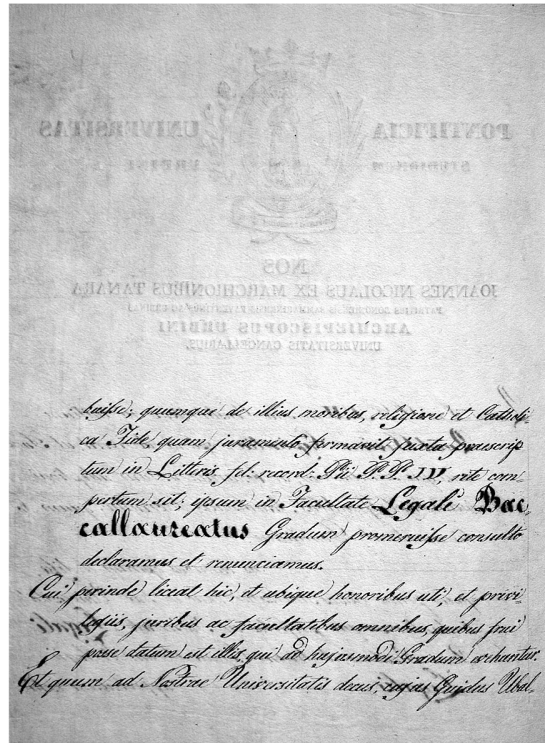 PONTIFICIA UNIVERSITAS
STUDIORUM URBINI
NOS
JOANNES NICOLAUS EX MARCHIONIBUS TANARA
ARCHIEPISCOPUS URBINI
UNIVERSITATIS CANCELLARIUS
buisse; quumque de illius moribus, religione et Catholi-
ca Fide quam juramento firmavit juxta praescrip
tum in Litteris fel: record: Pii P. P. IV, rite com
pertum sit; ipsum in Facultate Legali Bac
callaureatus Gradum promeruisse consulto
declaramus et renunciamus.
Cui perinde liceat hic, et ubique honoribus uti, et privi-
legiis, juribus ac facultatibus omnibus, quibus frui
passe datum est illis, qui ad hujusmodi Gradum evehantur.
Et quum ad Nostrae Universitatis decus, cujus Guidus Ubal-